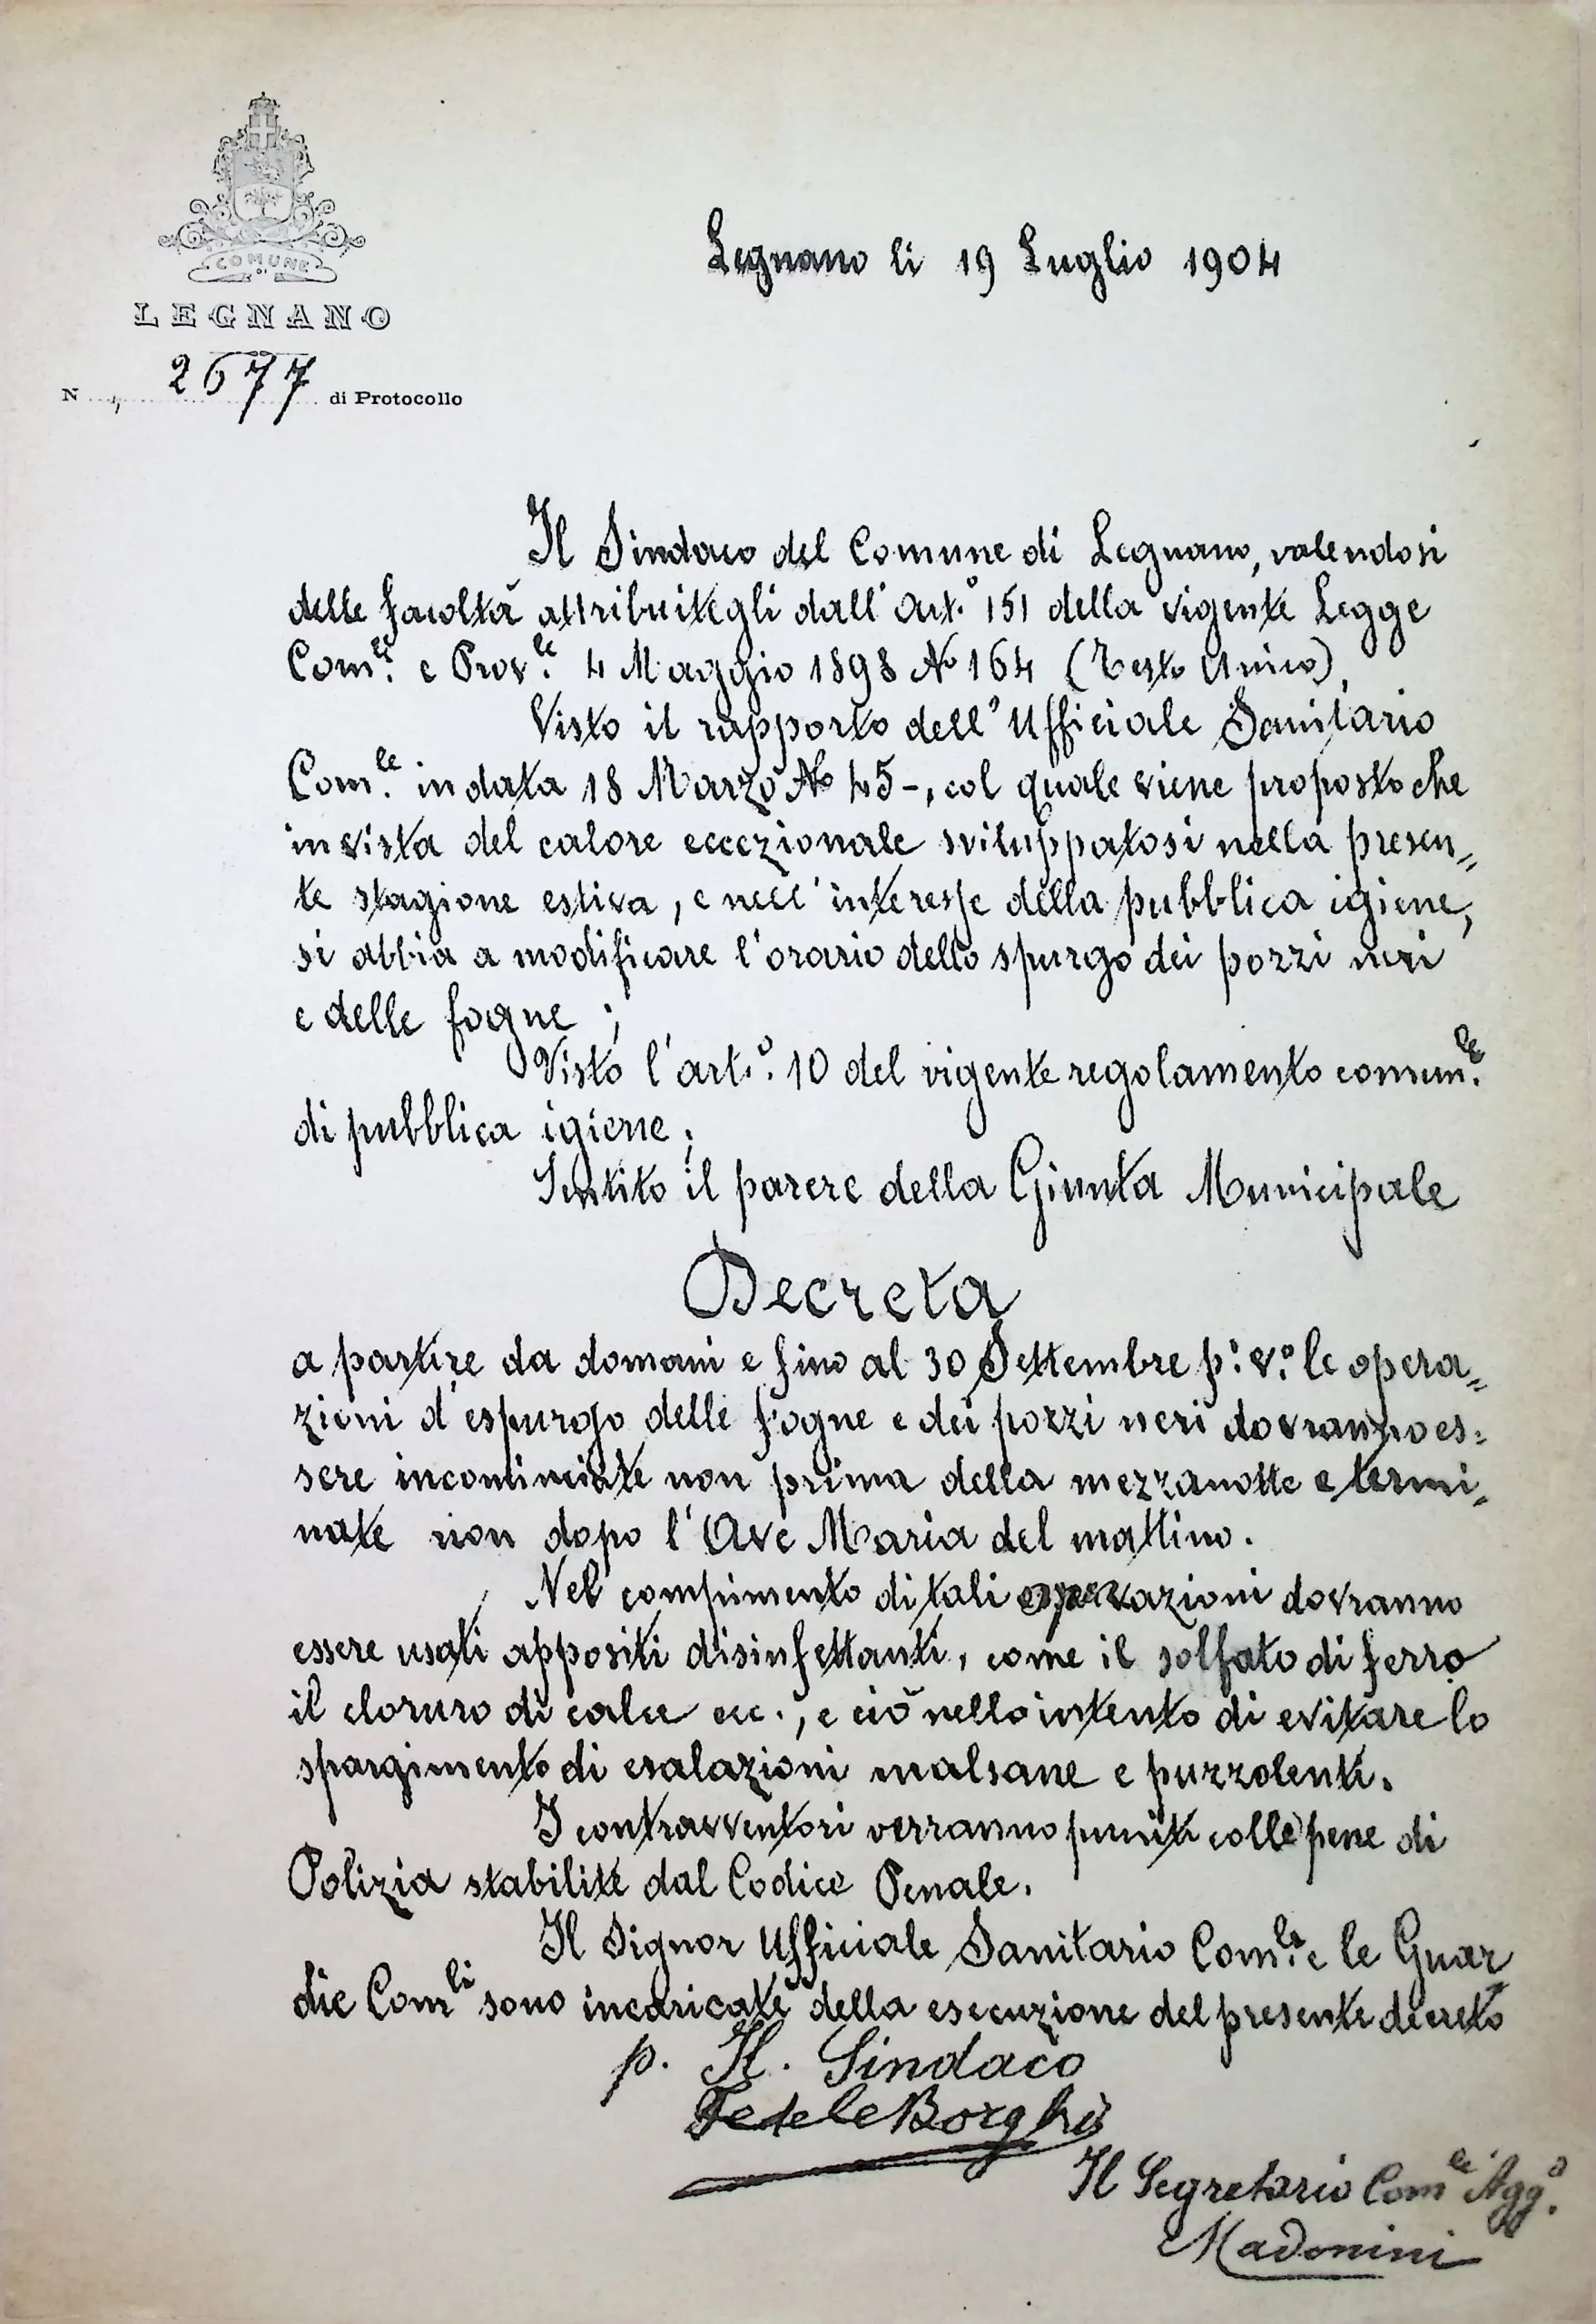 COMUNE
DI
LEGNANO
N. 2677 di Protocollo
Legnano li 19 Luglio 1904
Il Sindaco del Comune di Legnano, valendosi
delle facoltà attribuitegli dall'art.° 151 della vigente Legge
Com.le e Prov.le 4 Maggio 1898 N° 164 (Testo Unico),
Visto il rapporto dell'Ufficiale Sanitario
Com.le in data 18 Marzo N° 45-, col quale viene proposto che
in vista del calore eccezionale sviluppatosi nella presen„
te stagione estiva, e nell'interesse della pubblica igiene,
si abbia a modificare l'orario dello spurgo dei pozzi neri
e delle fogne;
Visto l'art.° 10 del vigente regolamento comun.le
di pubblica igiene;
Sentito il parere della Giunta Municipale
Decreta
a partire da domani e fino al 30 Settembre p.° v.° le opera„
zioni d'espurgo delle fogne e dei pozzi neri dovranno es=
sere incominciate non prima della mezzanotte e termi„
nate non dopo l'Ave Maria del mattino.
Nel compimento di tali operazioni dovranno
essere usati appositi disinfettanti, come il solfato di ferro
il cloruro di calce ecc., e ciò nello intento di evitare lo
spargimento di esalazioni malsane e puzzolenti.
I contravventori verranno puniti colle pene di
Polizia stabilite dal Codice Penale.
Il Signor Ufficiale Sanitario Com.le e le Guar
die Com.li sono incaricate della esecuzione del presente decreto
p. Il. Sindaco
Fedele Borghi
Il Segretario Com.le Agg.°
Madonini